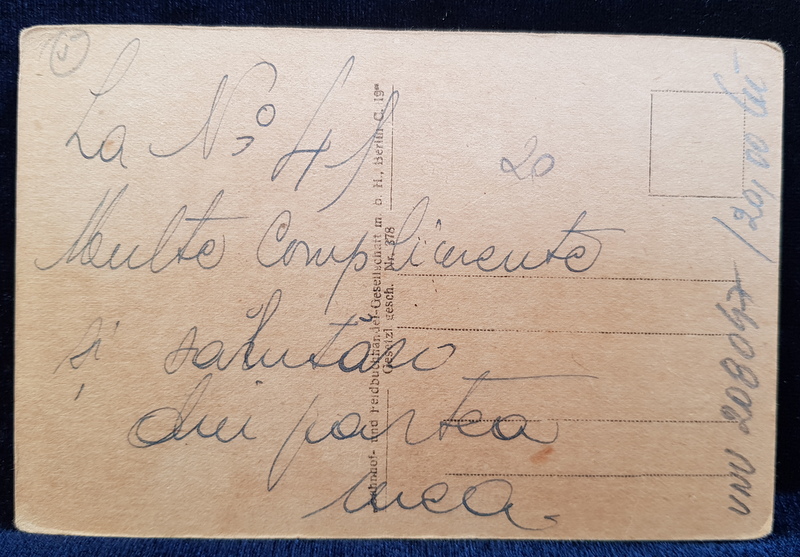 La No 45
Multe Complimente
și salutăro
din partea
mea.
Bahnhof- und Feldbuchhandel-Gesellschaft m. b. H., Berlin C. 19
Gesetzl. gesch. Nr. 378
20
/20,00 lei